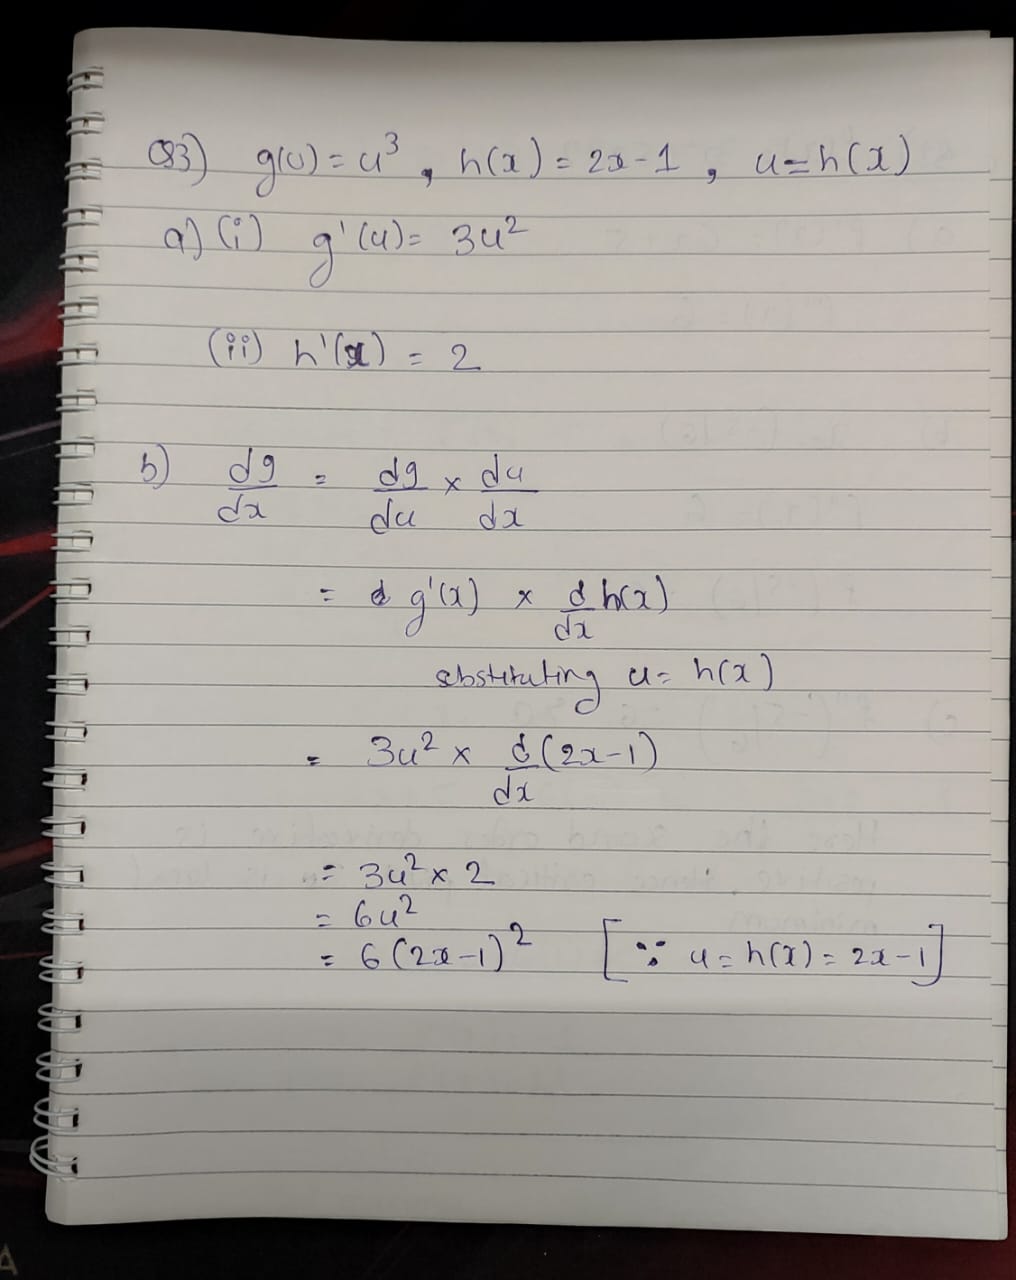 Q3) g(u) = u³ , h(x) = 2x-1 , u=h(x)
a) (i) g'(u) = 3u²
(ii) h'(x) = 2
b) dg/dx = dg/du × du/dx
= g'(x) × d/dx h(x)
substituting u = h(x)
= 3u² × d/dx (2x-1)
= 3u² × 2
= 6u²
= 6(2x-1)² [∵ u = h(x) = 2x-1]